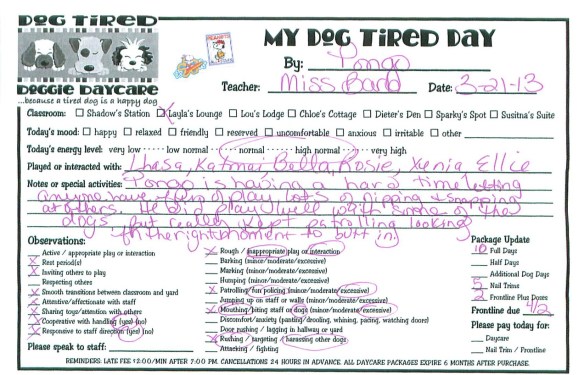 DOG TIRED
DOGGIE DAYCARE
...because a tired dog is a happy dog
PEANUTS
MY DOG TIRED DAY
By: Pongo
Teacher: Miss Barb Date: 3-21-13
Classroom: Shadow's Station Layla's Lounge Lou's Lodge Chloe's Cottage Dieter's Den Sparky's Spot Susitna's Suite
Today's mood: happy relaxed friendly reserved uncomfortable anxious irritable other
Today's energy level: very low ····· low ···· normal ···· normal ···· high normal ···· very high
Played or interacted with: Lhasa, Katmai Bella, Rosie, Xenia Ellie
Notes or special activities: Pongo is having a hard time letting
anyone have of play lots of nipping + snapping
at others. He did play well with some of the
dogs but really kept patrolling looking
for the right moment to butt in.
Observations:
Active / appropriate play or interaction
X Rest period(s)
X Inviting others to play
Respecting others
X Smooth transitions between classroom and yard
X Attentive/affectionate with staff
X Sharing toys/attention with others
X Cooperative with handling (yes) (no)
X Responsive to staff direction (yes) (no)
Please speak to staff:
X Rough / inappropriate play or interaction
Barking (minor/moderate/excessive)
Marking (minor/moderate/excessive)
Humping (minor/moderate/excessive)
X Patrolling/fun policing (minor/moderate/excessive)
Jumping up on staff or walls (minor/moderate/excessive)
X Mouthing/biting staff or dogs (minor/moderate/excessive)
Discomfort/anxiety (panting/drooling, whining, pacing, watching doors)
Door rushing / lagging in hallway or yard
X Rushing / targeting / harassing other dogs
Attacking / fighting
Package Update
10 Full Days
Half Days
Additional Dog Days
5 Nail Trims
2 Frontline Plus Doses
Frontline due 4/2
Please pay today for:
Daycare
Nail Trim / Frontline
REMINDERS: LATE FEE $2.00/MIN AFTER 7:00 PM. CANCELLATIONS 24 HOURS IN ADVANCE. ALL DAYCARE PACKAGES EXPIRE 6 MONTHS AFTER PURCHASE.